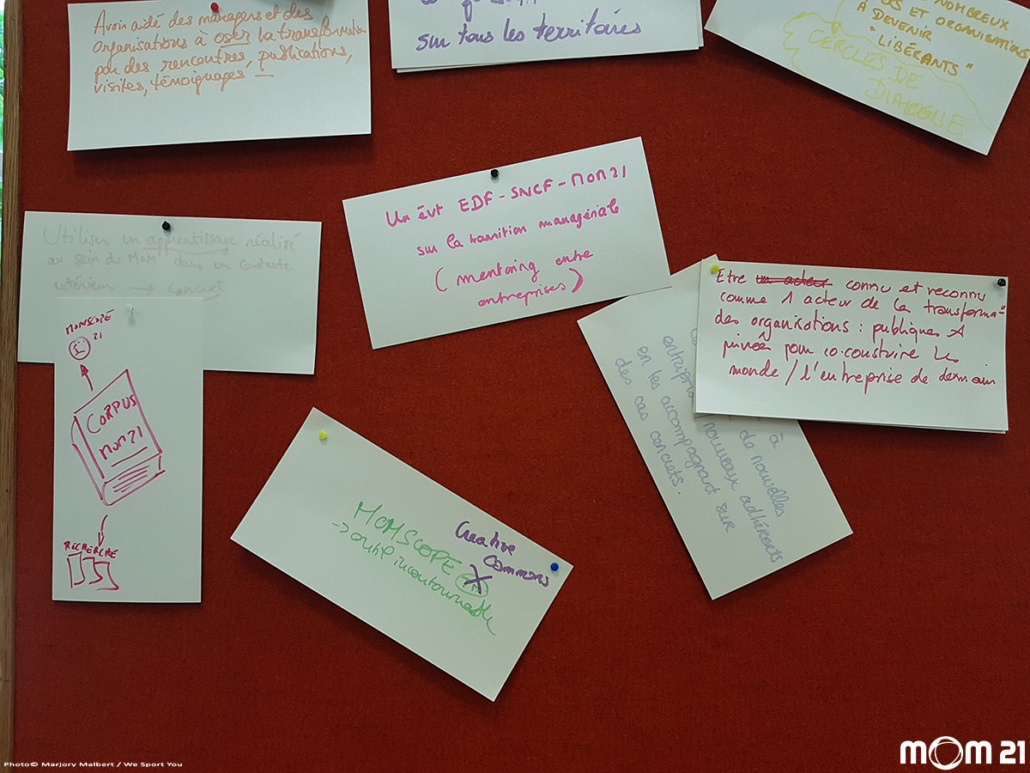 Avoir aidé des managers et des
organisations à oser la transformation
par des rencontres, publications,
visites, témoignages
sur tous les territoires
NOMBREUX
ET ORGANISATIONS
À DEVENIR
"LIBÉRANTS"
CERCLES DE
DIALOGUE
Utiliser un apprentissage réalisé
au sein du MOM dans un contexte
extérieur → concret
MOMSCOPE
21
CORPUS
MOM21
RECHERCHE
Un évt EDF-SNCF-MOM21
sur la transition managériale
(mentoring entre
entreprises)
Etre un acteur connu et reconnu
comme 1 acteur de la transforma°
des organisations : publiques &
privées pour co-construire le
monde / l'entreprise de demain
à
de nouvelles
nouveaux adhérents
en les accompagnant sur
des cas concrets.
MOMSCOPE
→ outil incontournable
Creative
Commons
Photo© Marjory Malbert / We Sport You
MOM 21